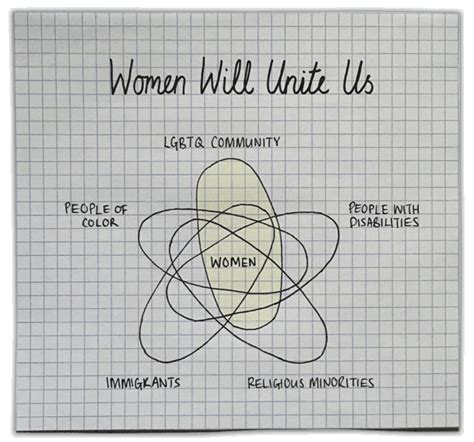 Women Will Unite Us
LGBTQ COMMUNITY
PEOPLE OF
COLOR
PEOPLE WITH
DISABILITIES
WOMEN
IMMIGRANTS
RELIGIOUS MINORITIES